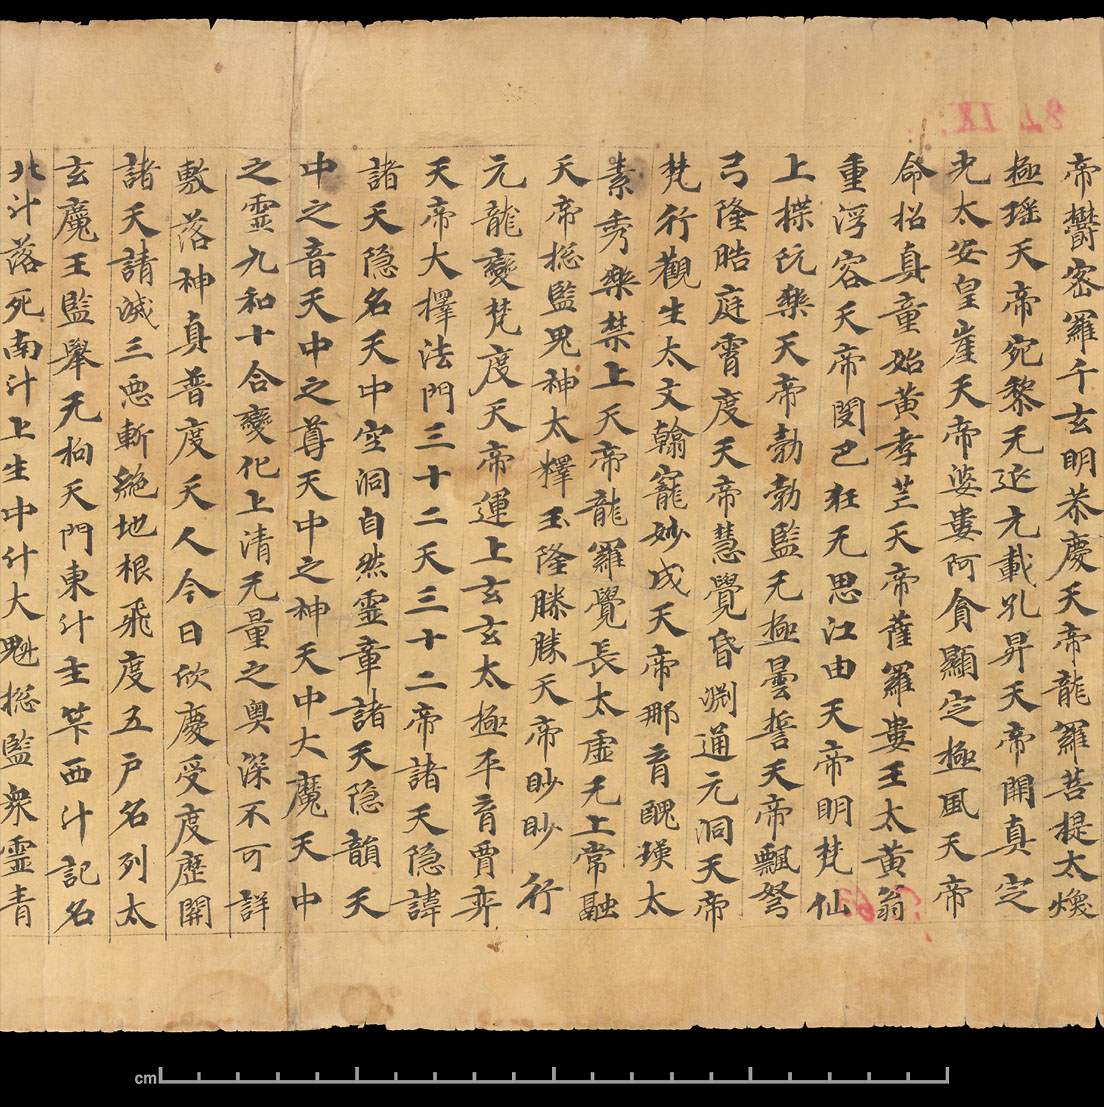 帝欝密羅千玄明恭慶天帝龍羅菩提太煥
極瑶天帝宛黎无延元載孔昇天帝開真定
光太安皇崖天帝婆婁阿貪顯定極風天帝
命招真童始黄孝芒天帝薩羅婁王太黄翁
重浮容天帝閔巴狂无思江由天帝明梵仙
上揲阮樂天帝勃勃監无極曇誓天帝飄弩
弓隆晧庭霄度天帝慧覺昏渊通元洞天帝
梵行觀生太文翰寵妙成天帝那育醜瑛太
素秀樂禁上天帝龍羅覺長太虚无上常融
天帝揔監鬼神太釋玉隆騰勝天帝眇眇行
元龍變梵度天帝運上玄玄太極平育賈弈
天帝大擇法門三十二天三十二帝諸天隐諱
諸天隐名天中空洞自然靈章諸天隐韻天
中之音天中之尊天中之神天中大魔天中
之靈九和十合變化上清无量之奥深不可詳
敷落神真普度天人今日欣慶受度歴關
諸天請滅三惡斬絶地根飛度五户名列太
玄魔王監舉无拘天門東斗主筭西斗記名
北斗落死南斗上生中斗大魁揔監衆靈青
cm